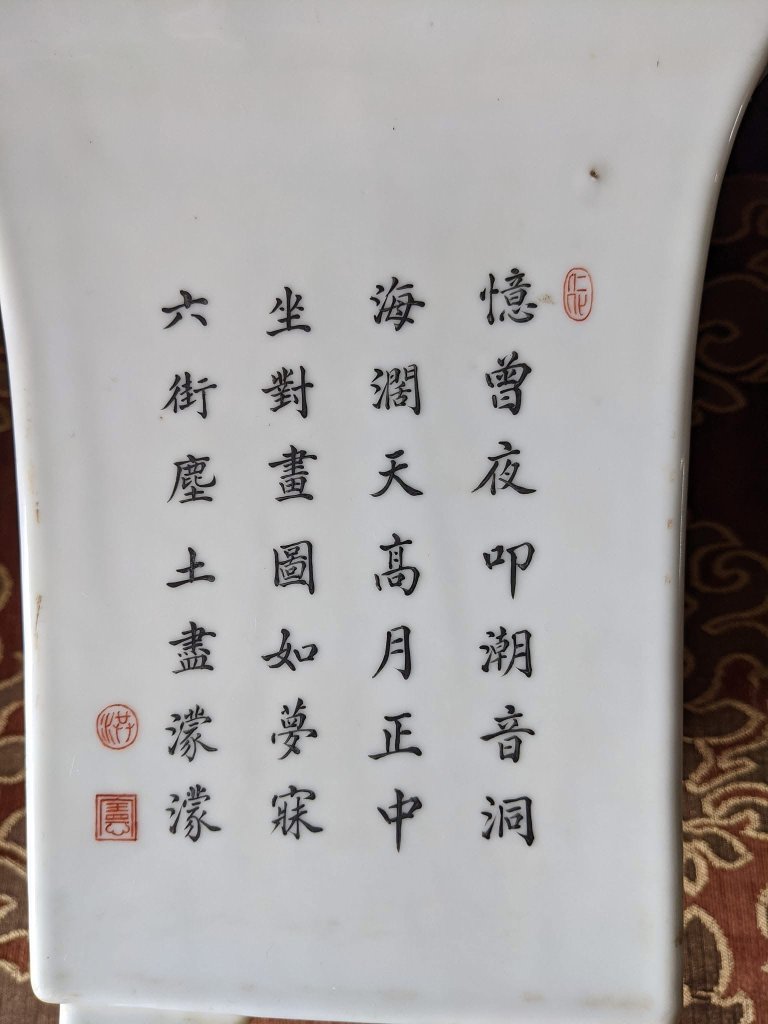 憶曾夜叩潮音洞
海濶天髙月正中
坐對畫圖如夢寐
六街塵土盡濛濛
洪
憲